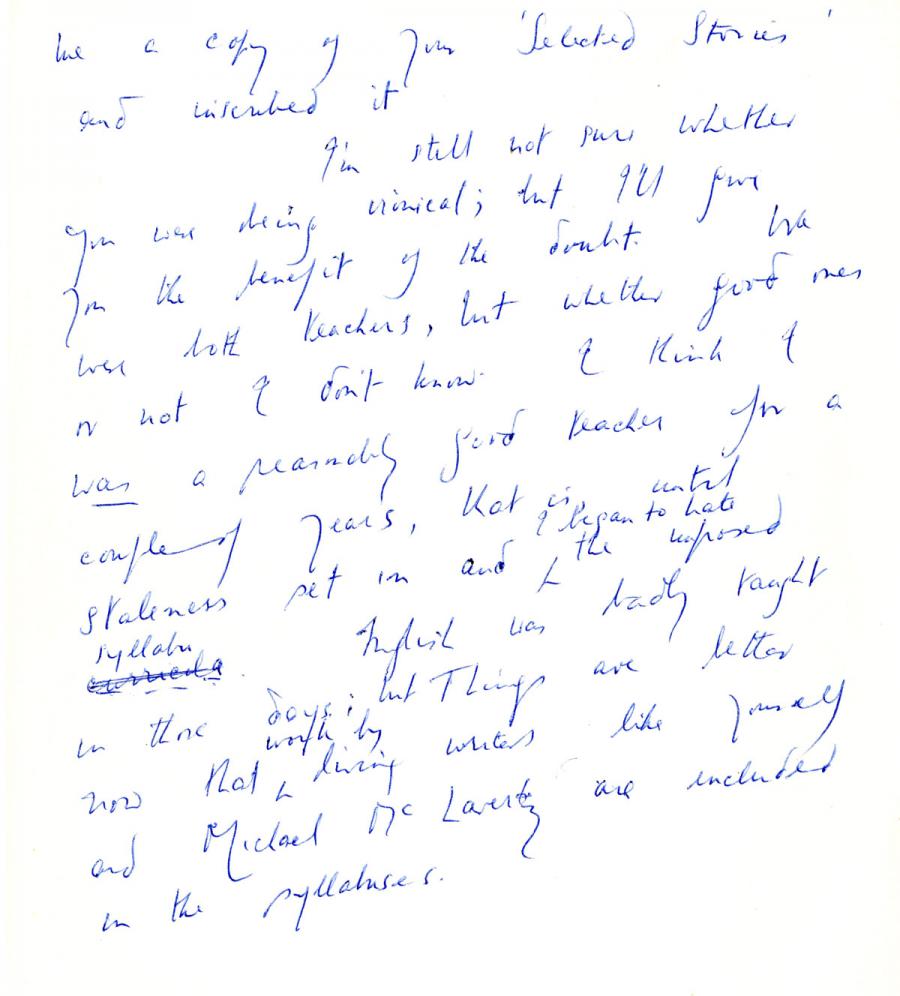 me a copy of your 'Selected Stories'
and inscribed it
I'm still not sure whether
you were being ironical; but I'll give
you the benefit of the doubt. We
were both teachers, but whether good ones
or not I don't know. I think I
was a reasonably good teacher for a
couple of years, that is, until
I began to hate
staleness set in and the imposed
syllabi
curricula.
English was badly taught
in those days; but Things are better
work by
now that living writers like yourself
and Michael Mc Laverty are included
in the syllabuses.